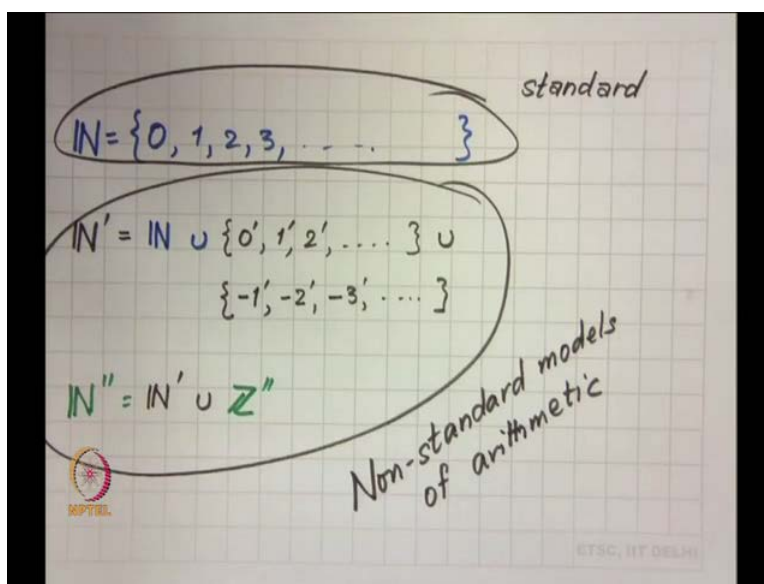 standard
ℕ = {0, 1, 2, 3, ..... }
ℕ' = ℕ ∪ {0', 1', 2', ..... } ∪
{-1', -2', -3', ..... }
ℕ'' = ℕ' ∪ ℤ''
Non-standard models
of arithmetic
NPTEL
ETSC, IIT DELHI